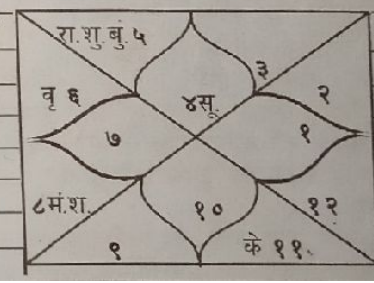 रा.शु.बु.५
३
वृ ६
४सू.
२
७
१
८मं.श.
१०
१२
९
के ११.